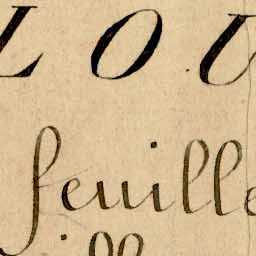 LOU
feuille